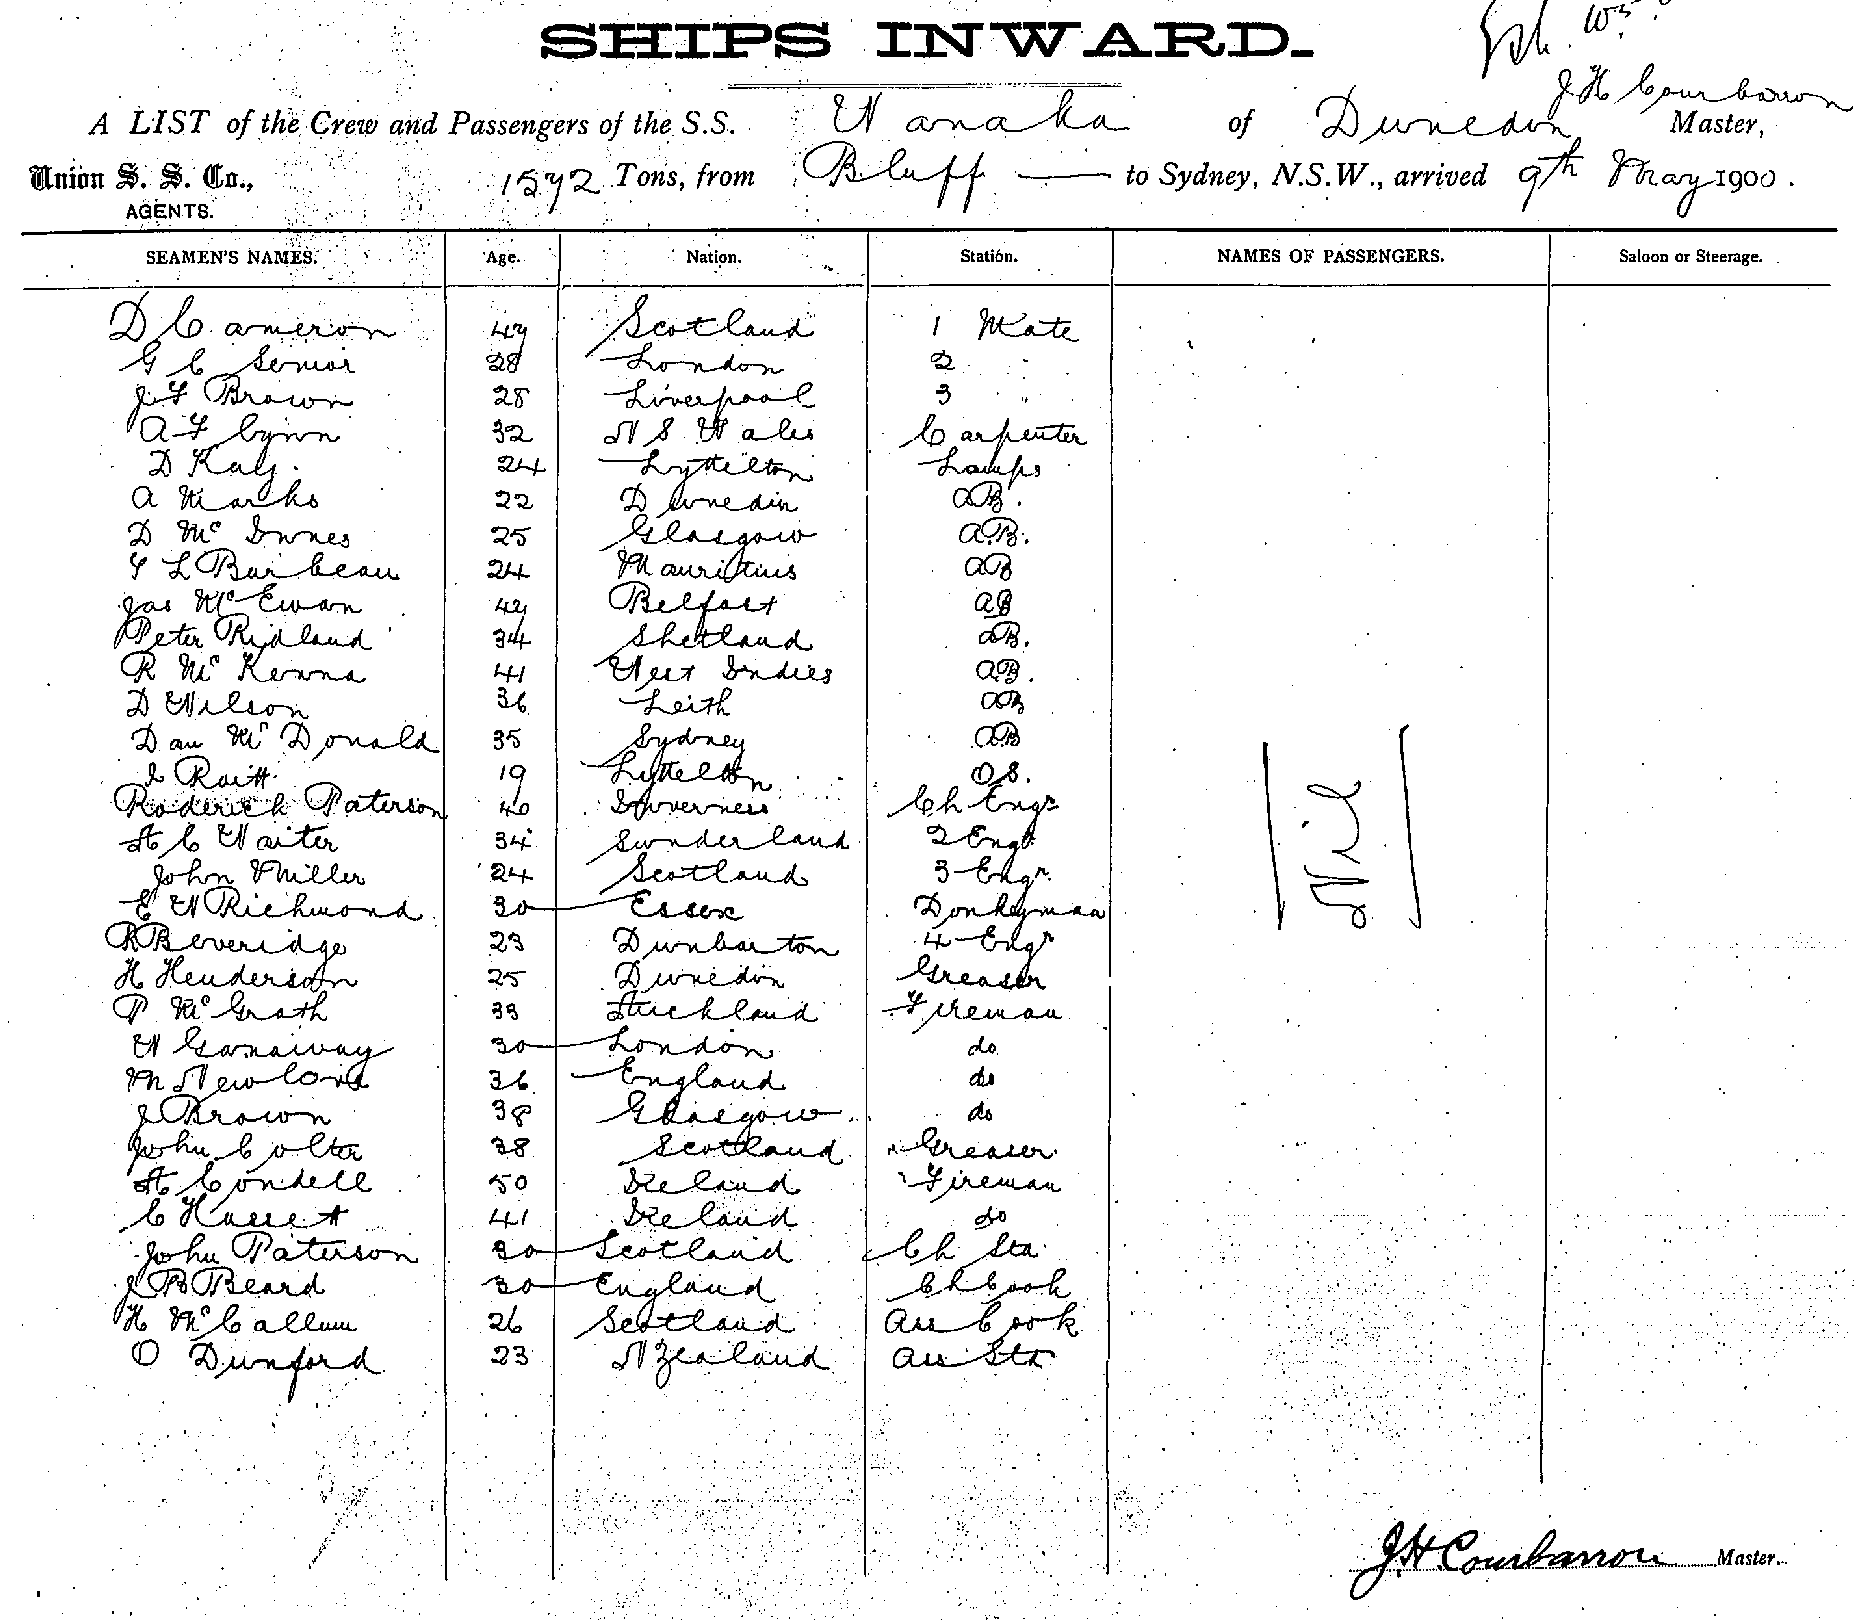 SHIPS INWARD.
J H Courbarron
A LIST of the Crew and Passengers of the S.S. Wanaka of Dunedin Master,
Union S. S. Co., 1572 Tons, from Bluff — to Sydney, N.S.W., arrived 9th May 1900.
AGENTS.
SEAMEN'S NAMES. Age. Nation. Station. NAMES OF PASSENGERS. Saloon or Steerage.
D Cameron 49 Scotland 1 Mate
G C Senior 28 London 2 "
J F Brown 28 Liverpool 3 "
A F Cynn 32 N S Wales Carpenter
D Kay 24 Lyttelton Lamps
A Marks 22 Dunedin AB.
D Mc Innes 25 Glasgow AB.
L Barbeau 24 Mauritius AB
Jas McEwan 49 Belfast AB
Peter Ridland 34 Shetland AB.
R Mc Kenna 41 West Indies AB.
D Wilson 36 Leith AB
Dan Mc Donald 35 Sydney AB
Raitt 19 Lyttelton O.S.
Roderick Paterson 40 Inverness Ch Engr
A C Waiter 34 Sunderland 2 Engr
John Miller 24 Scotland 3 Engr
E W Richmond 30 Essex Donkeyman
R Beveridge 23 Dunbarton 4 Engr
H Henderson 25 Dunedin Greaser
P McGrath 33 Auckland Fireman
W Ganaway 30 London do
M Newland 36 England do
J Brown 38 Glasgow do
John Colter 38 Scotland Greaser
A Condell 50 Ireland Fireman
C Hassett 41 Ireland do
John Paterson 30 Scotland Ch Std
J B Beard 30 England Ch Cook
H McCallum 26 Scotland Ass Cook
O Dunford 23 N Zealand Ass Std
Nil
J H Courbarron Master.